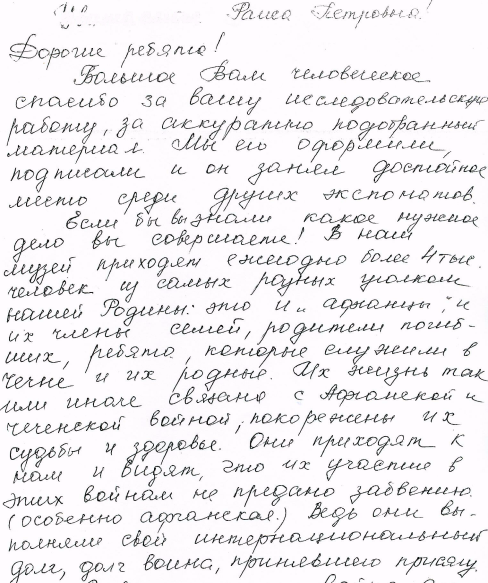 Раиса Петровна!
Дорогие ребята!
Большое Вам человеческое
спасибо за вашу исследовательскую
работу, за аккуратно подобранный
материал. Мы его оформили,
подписали и он занял достойное
место среди других экспонатов.
Если бы вы знали какое нужное
дело вы совершаете! В наш
музей приходят ежегодно более 4 тыс.
человек из самых разных уголков
нашей Родины: это и „афганцы", и
их члены семей, родители погиб-
ших, ребята, которые служили в
Чечне и их родные. Их жизнь так
или иначе связана с Афганской и
чеченской войной, покорежены их
судьбы и здоровье. Они приходят к
нам и видят, что их участие в
этих войнах не предано забвению.
(особенно афганская.) Ведь они вы-
полняли свой интернациональный
долг, долг воина, принявшего присягу.